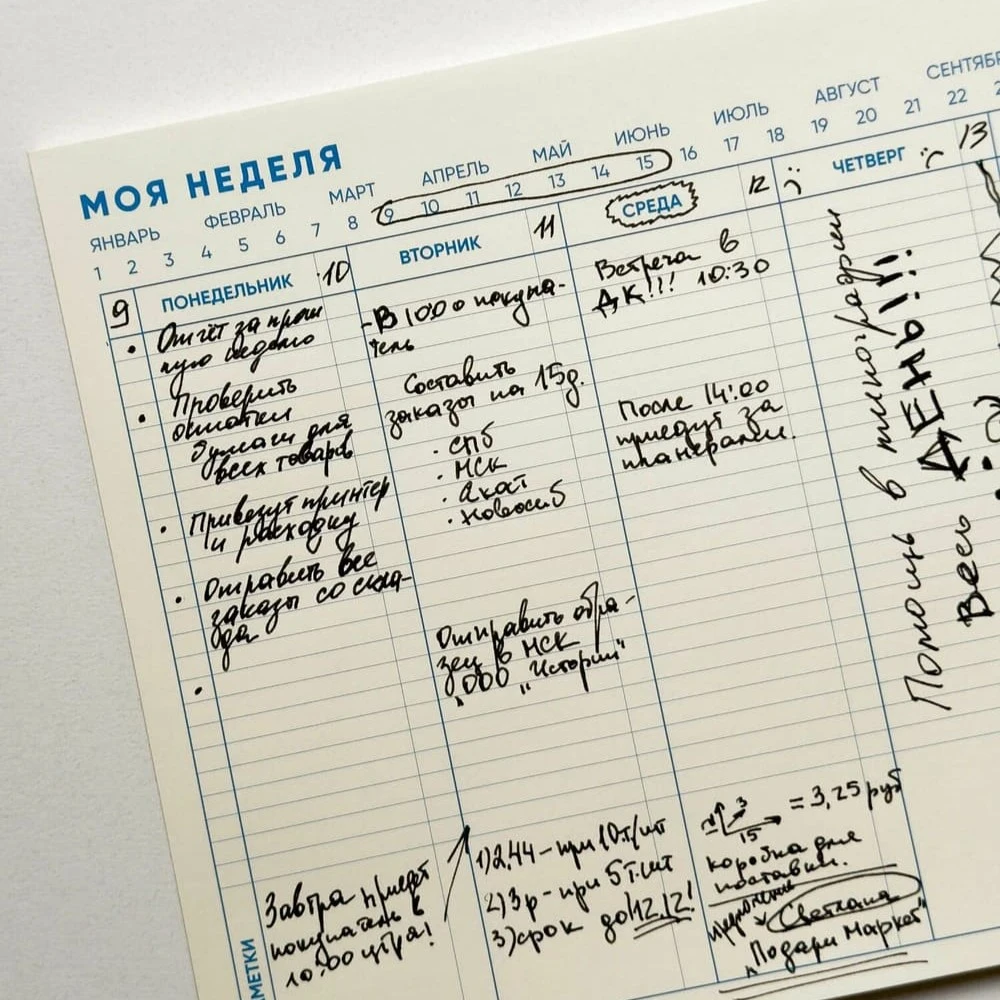 МОЯ НЕДЕЛЯ
ЯНВАРЬ ФЕВРАЛЬ МАРТ АПРЕЛЬ МАЙ ИЮНЬ ИЮЛЬ АВГУСТ СЕНТЯБР
1 2 3 4 5 6 7 8 9 10 11 12 13 14 15 16 17 18 19 20 21 22
9 ПОНЕДЕЛЬНИК 10
• Отчёт за прош
лую неделю
• Проверить
остатки
бумаги для
всех товаров
• Привезут принтер
и расходку
• Отправить все
заказы со скла-
да
•
ВТОРНИК 11
-В 10:00 покупа-
тель
Составить
заказы на 15д.
· СПб
· МСК
· Екат
· Новосиб
Отправить обра-
зец в МСК
"ООО "Истории"
СРЕДА 12
Встреча в
ДК!!! 10:30
После 14:00
приедут за
планерами.
:( ЧЕТВЕРГ :( 13
Помощь в типографии
Весь ДЕНЬ!!!
:(
МЕТКИ
Завтра приедет
покупатель в
10:00 утра!
1) 2,44 - при 10т/шт
2) 3р - при 5т.шт
3) срок до 12.12!
3 15 = 3,25 руб
коробка для
поставки.
Светлана
"Подари Маркет"